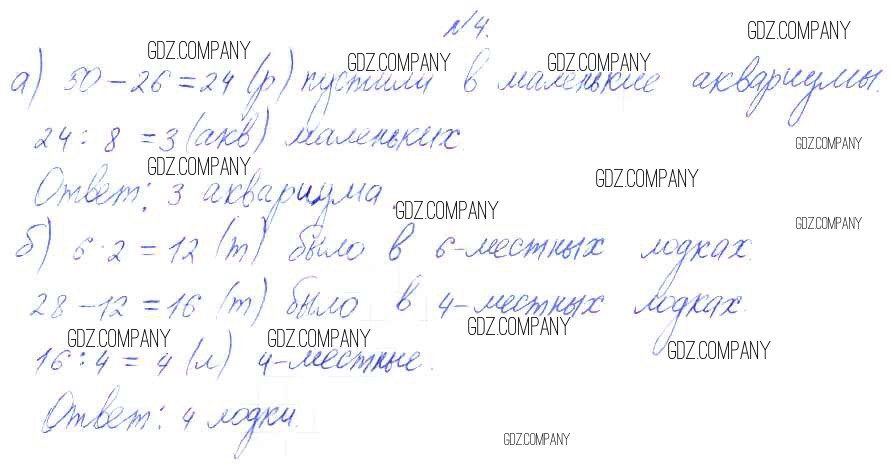 №4.
а) 50 - 26 = 24 (р) пустили в маленькие аквариумы.
24 : 8 = 3 (акв) маленьких.
Ответ: 3 аквариума.
б) 6 · 2 = 12 (т) было в 6-местных лодках.
28 - 12 = 16 (т) было в 4-местных лодках.
16 : 4 = 4 (л) 4-местные.
Ответ: 4 лодки.
GDZ.COMPANY
GDZ.COMPANY
GDZ.COMPANY
GDZ.COMPANY
GDZ.COMPANY
GDZ.COMPANY
GDZ.COMPANY
GDZ.COMPANY
GDZ.COMPANY
GDZ.COMPANY
GDZ.COMPANY
GDZ.COMPANY
GDZ.COMPANY
GDZ.COMPANY